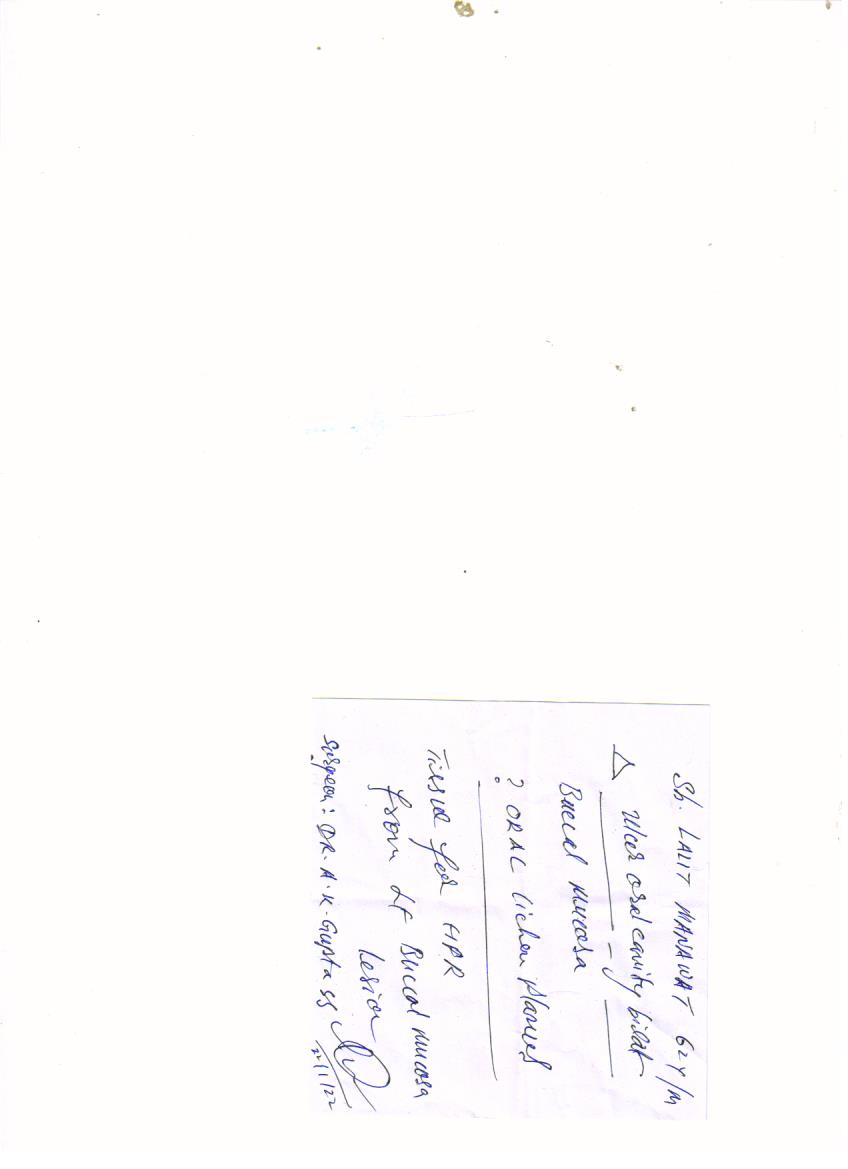 Sh. LALIT MANAWAT 62Y/M
△ Ulcer oral cavity bilat
Buccal Mucosa
? ORAL Lichen Planus
Tissue for HPR
from Lt Buccal mucosa
Lesion
Surgeon: DR. A.K. Gupta
22/1/22